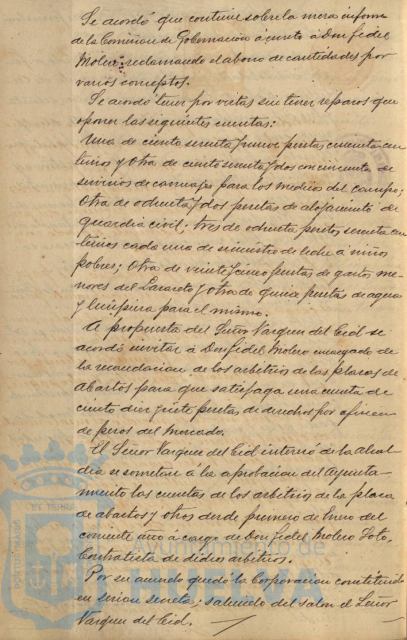 Se acordó que continúe sobre la mesa informe
de la Comisión de Gobernación á cuenta á Don Fidel
Molero reclamando el abono de cantidades por
varios conceptos.
Se acordó tener por vistas sin tener reparos que
oponer las siguientes cuentas:
Una de ciento setenta y nueve pesetas cincuenta cen
timos y otra de ciento setenta y dos con cincuenta de
servicios de carruajes para los médicos del campo;
Otra de ochenta y dos pesetas de alojamiento de
guardia civil; tres de ochenta pesetas setenta cen
timos cada una de suministro de leche á niños
pobres; Otra de veinte y cinco pesetas de gastos me
nores del Lazareto y otra de quince pesetas de agua
y limpieza para el mismo.
A propuesta del Señor Vazquez del Cid se
acordó invitar á Don Fidel Molero encargado de
la recaudación de los arbitrios de las plazas de
abastos para que satisfaga una cuenta de
ciento diez y siete pesetas de derechos por afinación
de pesos del Mercado.
El Señor Vazquez del Cid interesó de la alcal
día se sometan á la aprobación del Ayunta
miento las cuentas de los arbitrios de la plaza
de abastos y otros desde primero de Enero del
corriente año á cargo de Don Fidel Molero Soto,
Contratista de dichos arbitrios.
Por su acuerdo quedó la Corporación constituida
en sesión secreta, saliendo del salón el Señor
Vazquez del Cid.